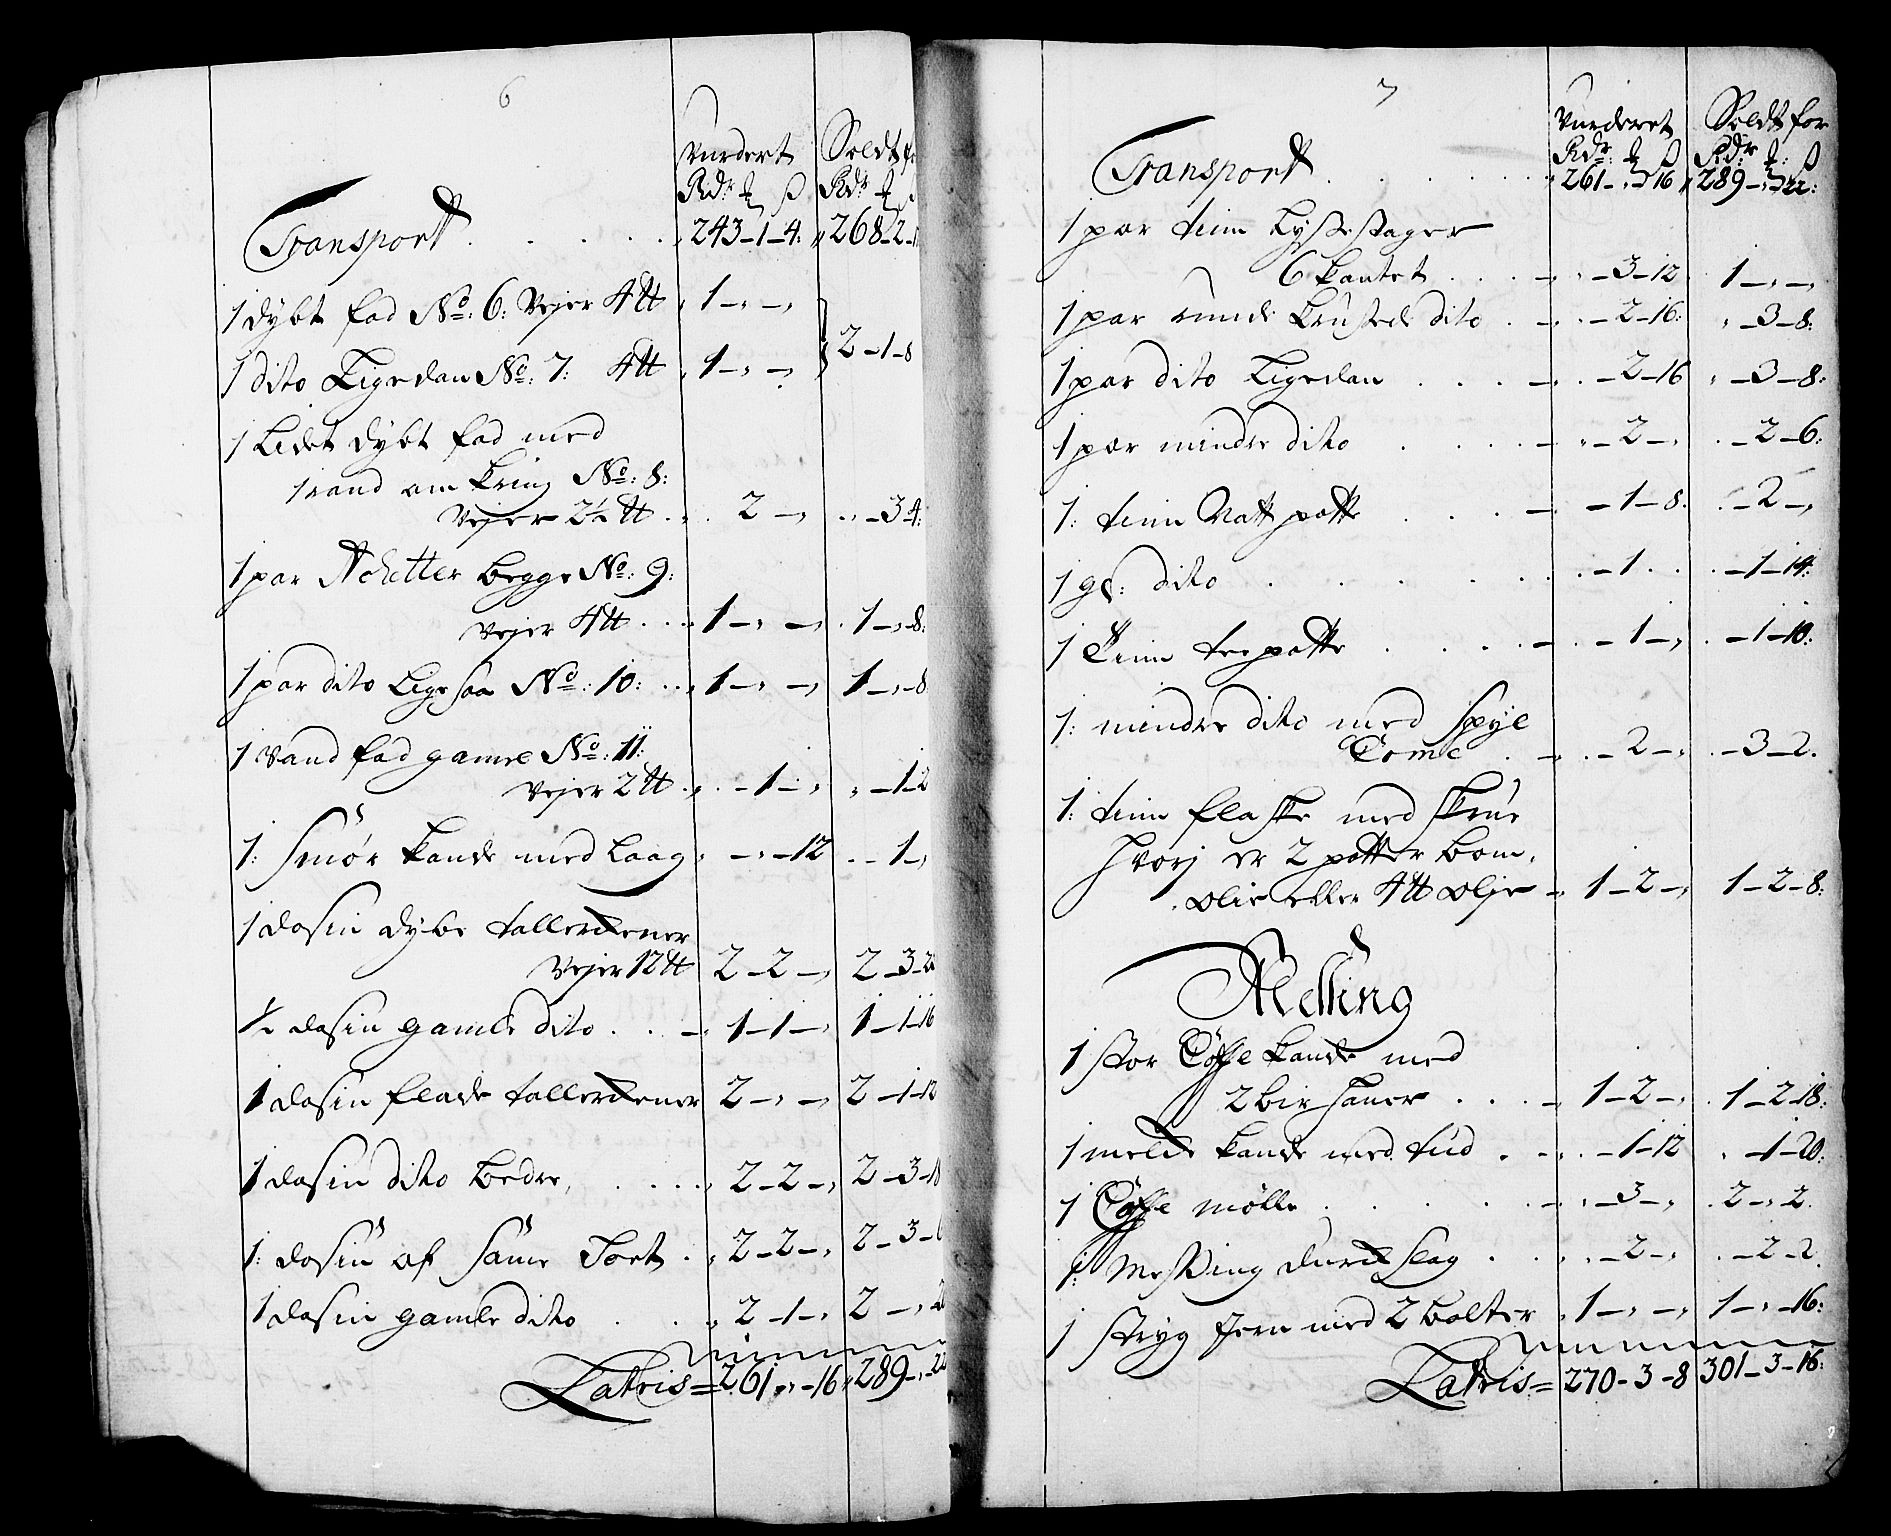 6
Vurdert Soldt f
Rdr ß Rdr
Transport . . . . . 243-1-4: 268-2-
1 dybt fad No: 6: Vejer 4 ℔ 1-,-,
1 dito Ligedan No: 7: 4 ℔ 1-,-, 2-1-8
1 Lidet dybt fad med
1 rand om kring No: 8:
Vejer 2½ ℔ . . 2-, . -3 4:
1 par begge No: 9:
Vejer 4 ℔ . . . 1-,-, 1-,-8:
1 par dito Ligesaa No: 10: . . 1-,-, 1-,-8
1 Vand fad gamel No: 11:
Vejer 2 ℔ . . -1-, -1-2
1: Smør kande med Laag -,-12 . -1-,
1 dosin dybe tallerckener
Vejer 12 ℔ 2-2-, 2-3-2
½ dosin gamle dito . . - 1-1-, 1-1-16
1 dosin flade tallerckener 2-,-, 2-1-12
1 dosin dito bedre, . . . . 2-2-, 2-3-18
1: dosin af same Sort . 2-2-, 2-3-
1 dosin gamle dito . . 2-1-, 2-,-2
Latris = 261,,-16 289-,-22
7
Vurderet Soldt for
Rdr: ß Rdr: ß
Transport . . . . . 261-,-16 289-,-22:
1 par tinn Lysestager
6 kantet . . . - -3-12 1-,-,
1 par runde krusede dito . - . -2-16: -3-8:
1 par dito Ligedan . . . - . -2-16 -3-8:
1 par mindre dito . . . - -2-, . -2-6:
1: tinn Natt potte . . - -1-8. . -2-,
1 gl: dito . . . . . -1 . . -1-14:
1 Tinn tee potte . . . - -1-, . -1-10:
1: mindre dito med Spyl
Come . - . -2-, . -3-2.
1: tinn flaske med skrue
hvorj er 2 potter bom.
olie eller 4 ℔ olje - 1-2-, 1-2-8:
Messing
1 stor Coffe kande med
2 bir haner . . . - 1-2-, 1-2-18:
1 melcke kande med tud . - . -1-12 -1-20:
1 Coffe mølle . . . . - -3-, . 2-,2.
1: Messing durck slag . . . -2-, . -2-2
1 stryg Jern med 2 bolter 1-,-, 1-,-16:
Latris = 270-3-8 301-3-16: